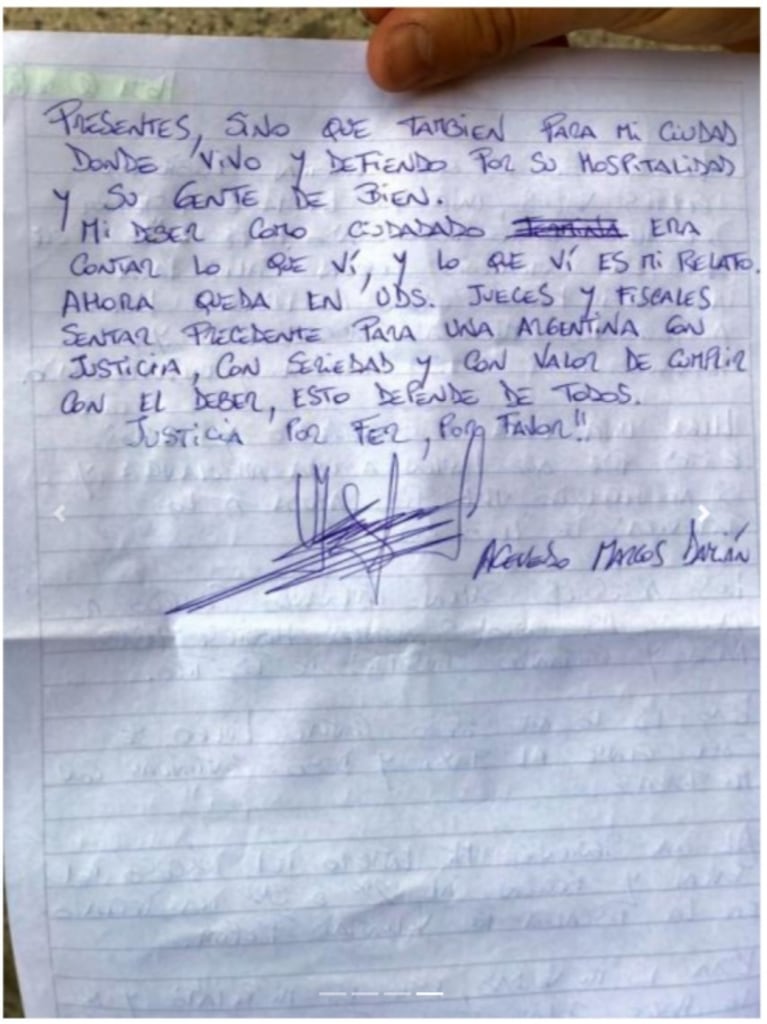 PRESENTES, SINO QUE TAMBIEN PARA MI CIUDAD
DONDE VIVO Y DEFIENDO POR SU HOSPITALIDAD
Y SU GENTE DE BIEN.
MI DEBER COMO CIUDADADO ERA
CONTAR LO QUE VÍ, Y LO QUE VÍ ES MI RELATO.
AHORA QUEDA EN UDS. JUECES Y FISCALES
SENTAR PRECEDENTE PARA UNA ARGENTINA CON
JUSTICIA, CON SERIEDAD Y CON VALOR DE CUMPLIR
CON EL DEBER, ESTO DEPENDE DE TODOS.
JUSTICIA POR FER, POR FAVOR!!
ACEVEDO MARCOS DARIÁN